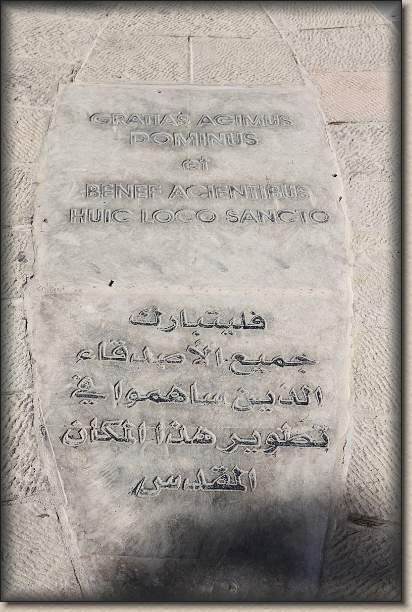 GRATIAS AGIMUS
DOMINUS
et
BENEF ACIENTIBUS
HUIC LOCO SANCTO
فليتبارك
جميع الأصدقاء
الذين ساهموا في
تطوير هذا المكان
المقدس